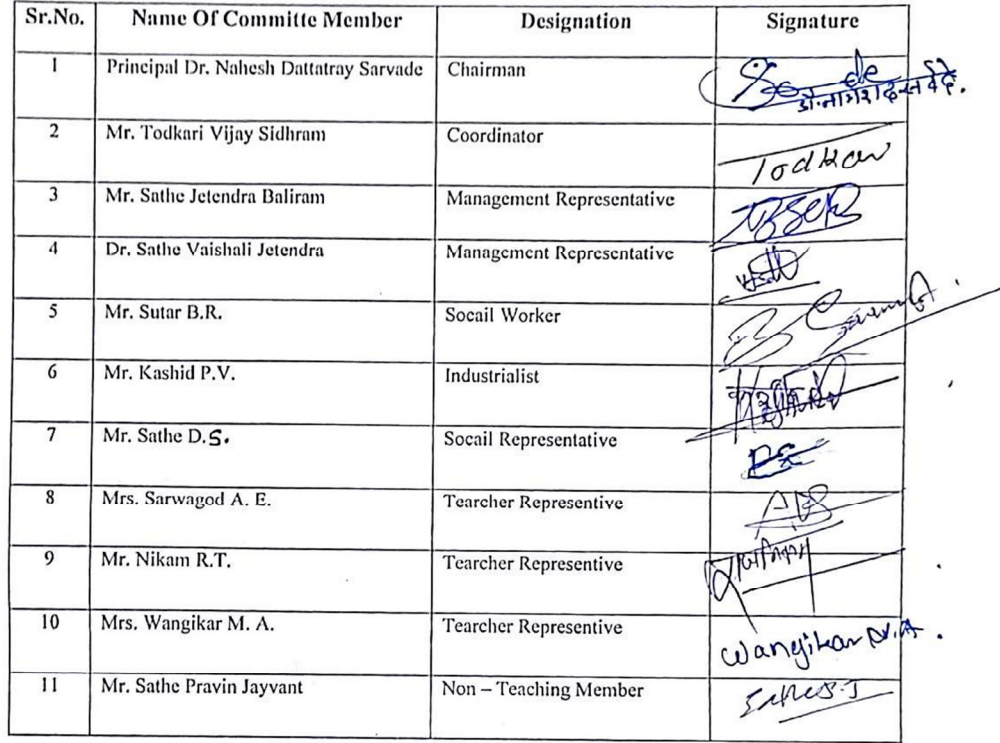 Sr.No. Name Of Committe Member Designation Signature
1 Principal Dr. Nahesh Dattatray Sarvade Chairman
2 Mr. Todkari Vijay Sidhram Coordinator Todkar
3 Mr. Sathe Jetendra Baliram Management Representative
4 Dr. Sathe Vaishali Jetendra Management Representative
5 Mr. Sutar B.R. Socail Worker
6 Mr. Kashid P.V. Industrialist
7 Mr. Sathe D.S. Socail Representative
8 Mrs. Sarwagod A. E. Tearcher Representive
9 Mr. Nikam R.T. Tearcher Representive
10 Mrs. Wangikar M. A. Tearcher Representive Wangikar M.A.
11 Mr. Sathe Pravin Jayvant Non – Teaching Member